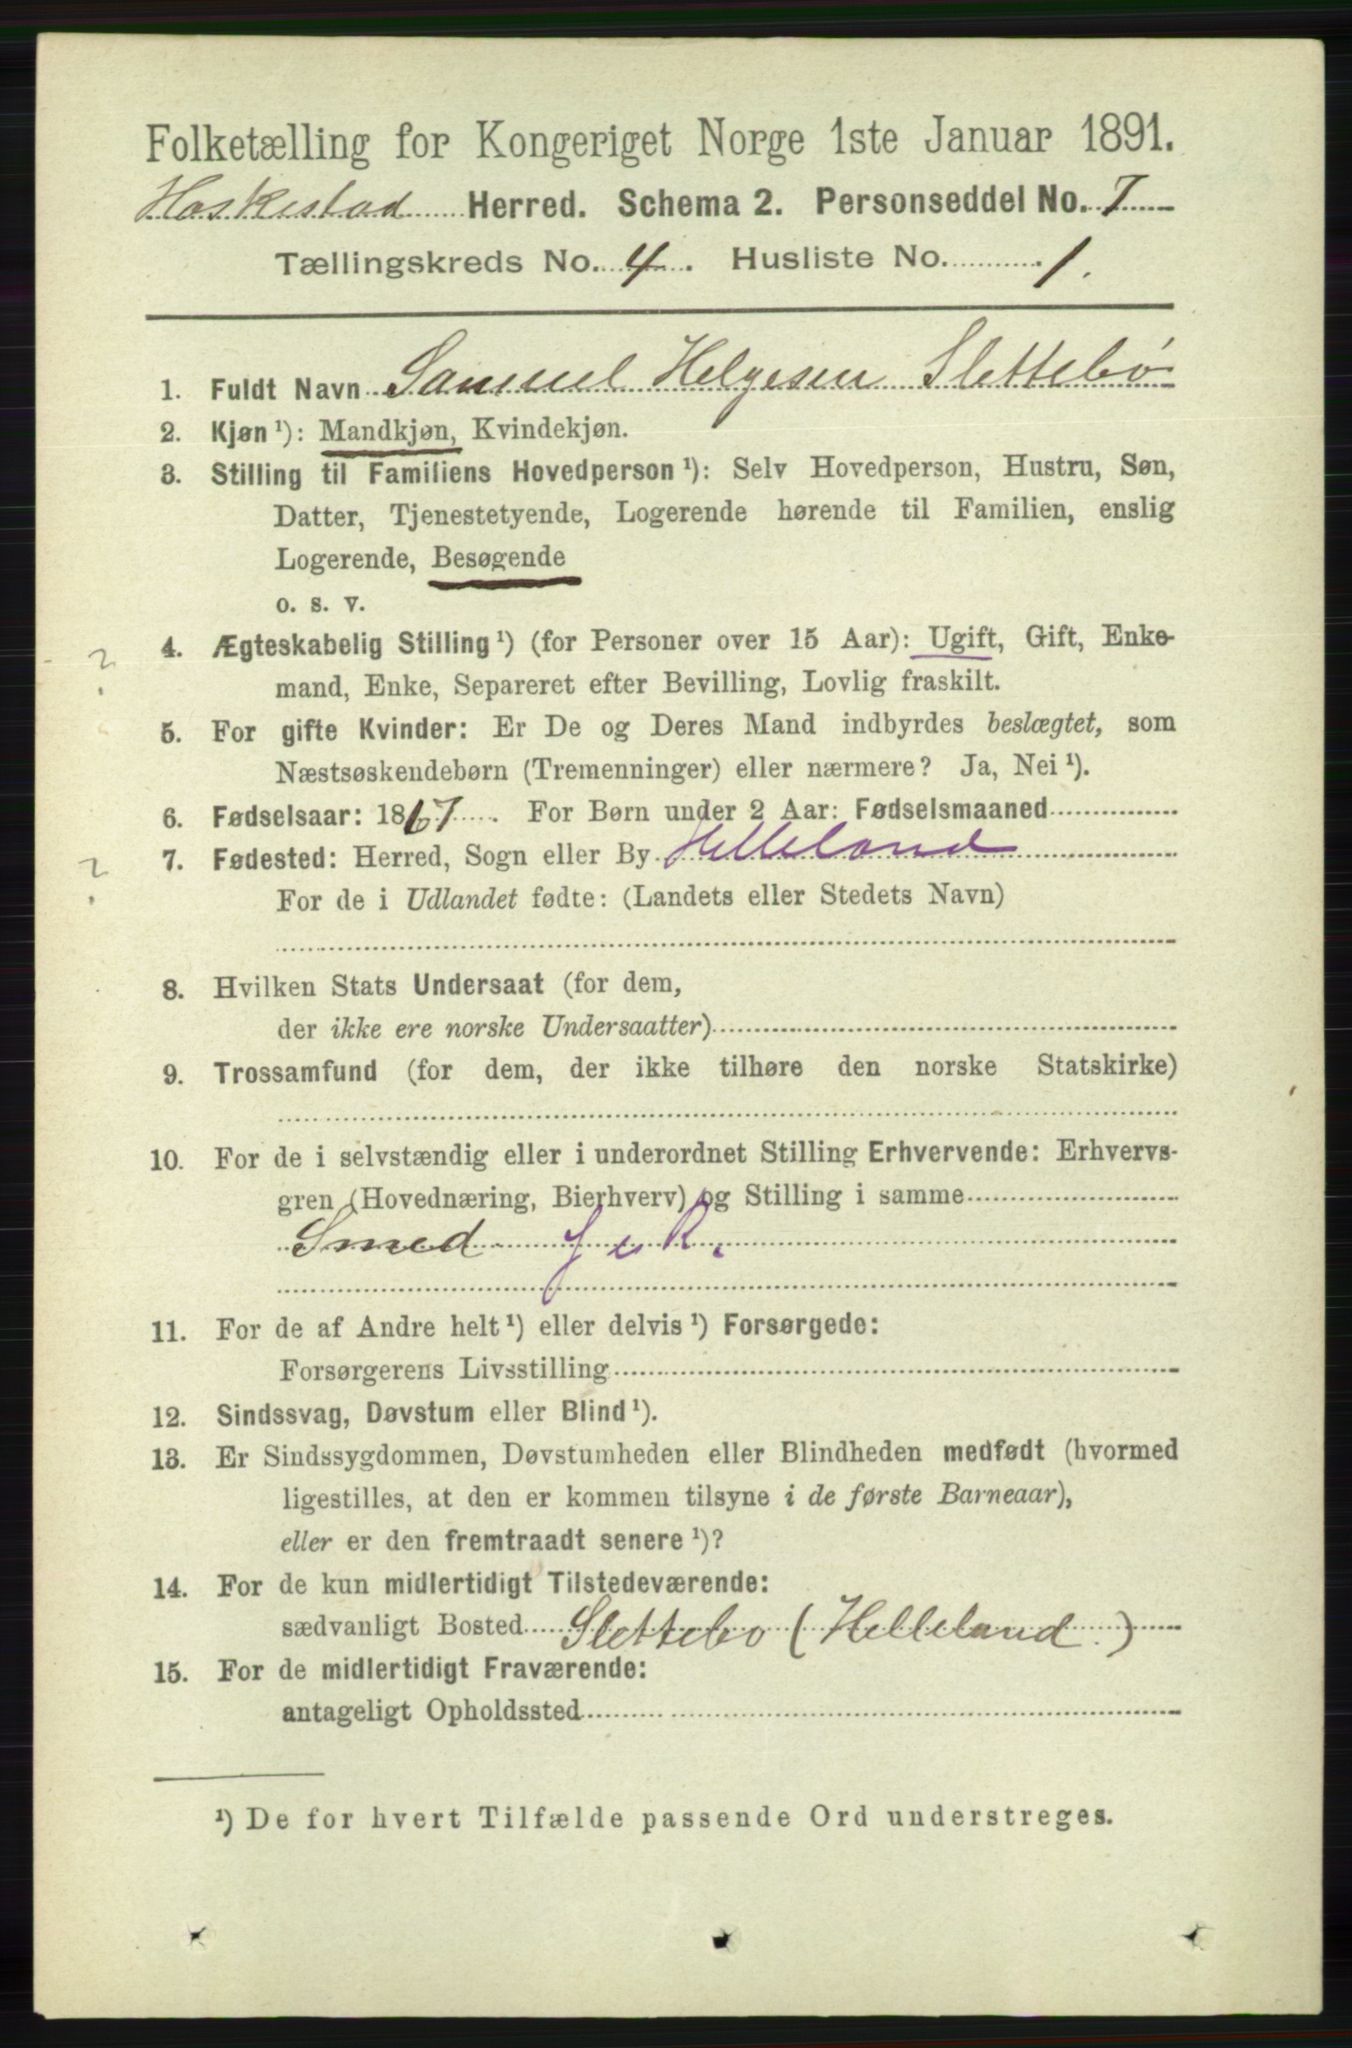 Folketælling for Kongeriget Norge 1ste Januar 1891.
Heskestad Herred. Schema 2. Personseddel No. 7
Tællingskreds No. 4. Husliste No. 1.
1. Fuldt Navn Samuel Helgesen Slettebø
2. Kjøn ¹): Mandkjøn, Kvindekjøn.
3. Stilling til Familiens Hovedperson ¹): Selv Hovedperson, Hustru, Søn,
Datter, Tjenestetyende, Logerende hørende til Familien, enslig
Logerende, Besøgende
o. s. v.
4. Ægteskabelig Stilling ¹) (for Personer over 15 Aar): Ugift, Gift, Enke-
?
mand, Enke, Separeret efter Bevilling, Lovlig fraskilt.
5. For gifte Kvinder: Er De og Deres Mand indbyrdes beslægtet, som
Næstsøskendebørn (Tremenninger) eller nærmere? Ja, Nei ¹).
6. Fødselsaar: 1867. For Børn under 2 Aar: Fødselsmaaned
7. Fødested: Herred, Sogn eller By Helleland
?
For de i Udlandet fødte: (Landets eller Stedets Navn)
8. Hvilken Stats Undersaat (for dem,
der ikke ere norske Undersaatter)
9. Trossamfund (for dem, der ikke tilhøre den norske Statskirke)
10. For de i selvstændig eller i underordnet Stilling Erhvervende: Erhvervs-
gren (Hovednæring, Bierhverv) og Stilling i samme
Smed
11. For de af Andre helt ¹) eller delvis ¹) Forsørgede:
Forsørgerens Livsstilling
12. Sindssvag, Døvstum eller Blind ¹).
13. Er Sindssygdommen, Døvstumheden eller Blindheden medfødt (hvormed
ligestilles, at den er kommen tilsyne i de første Barneaar),
eller er den fremtraadt senere ¹)?
14. For de kun midlertidigt Tilstedeværende:
sædvanligt Bosted Slettebo (Helleland.)
15. For de midlertidigt Fraværende:
antageligt Opholdssted
¹) De for hvert Tilfælde passende Ord understreges.